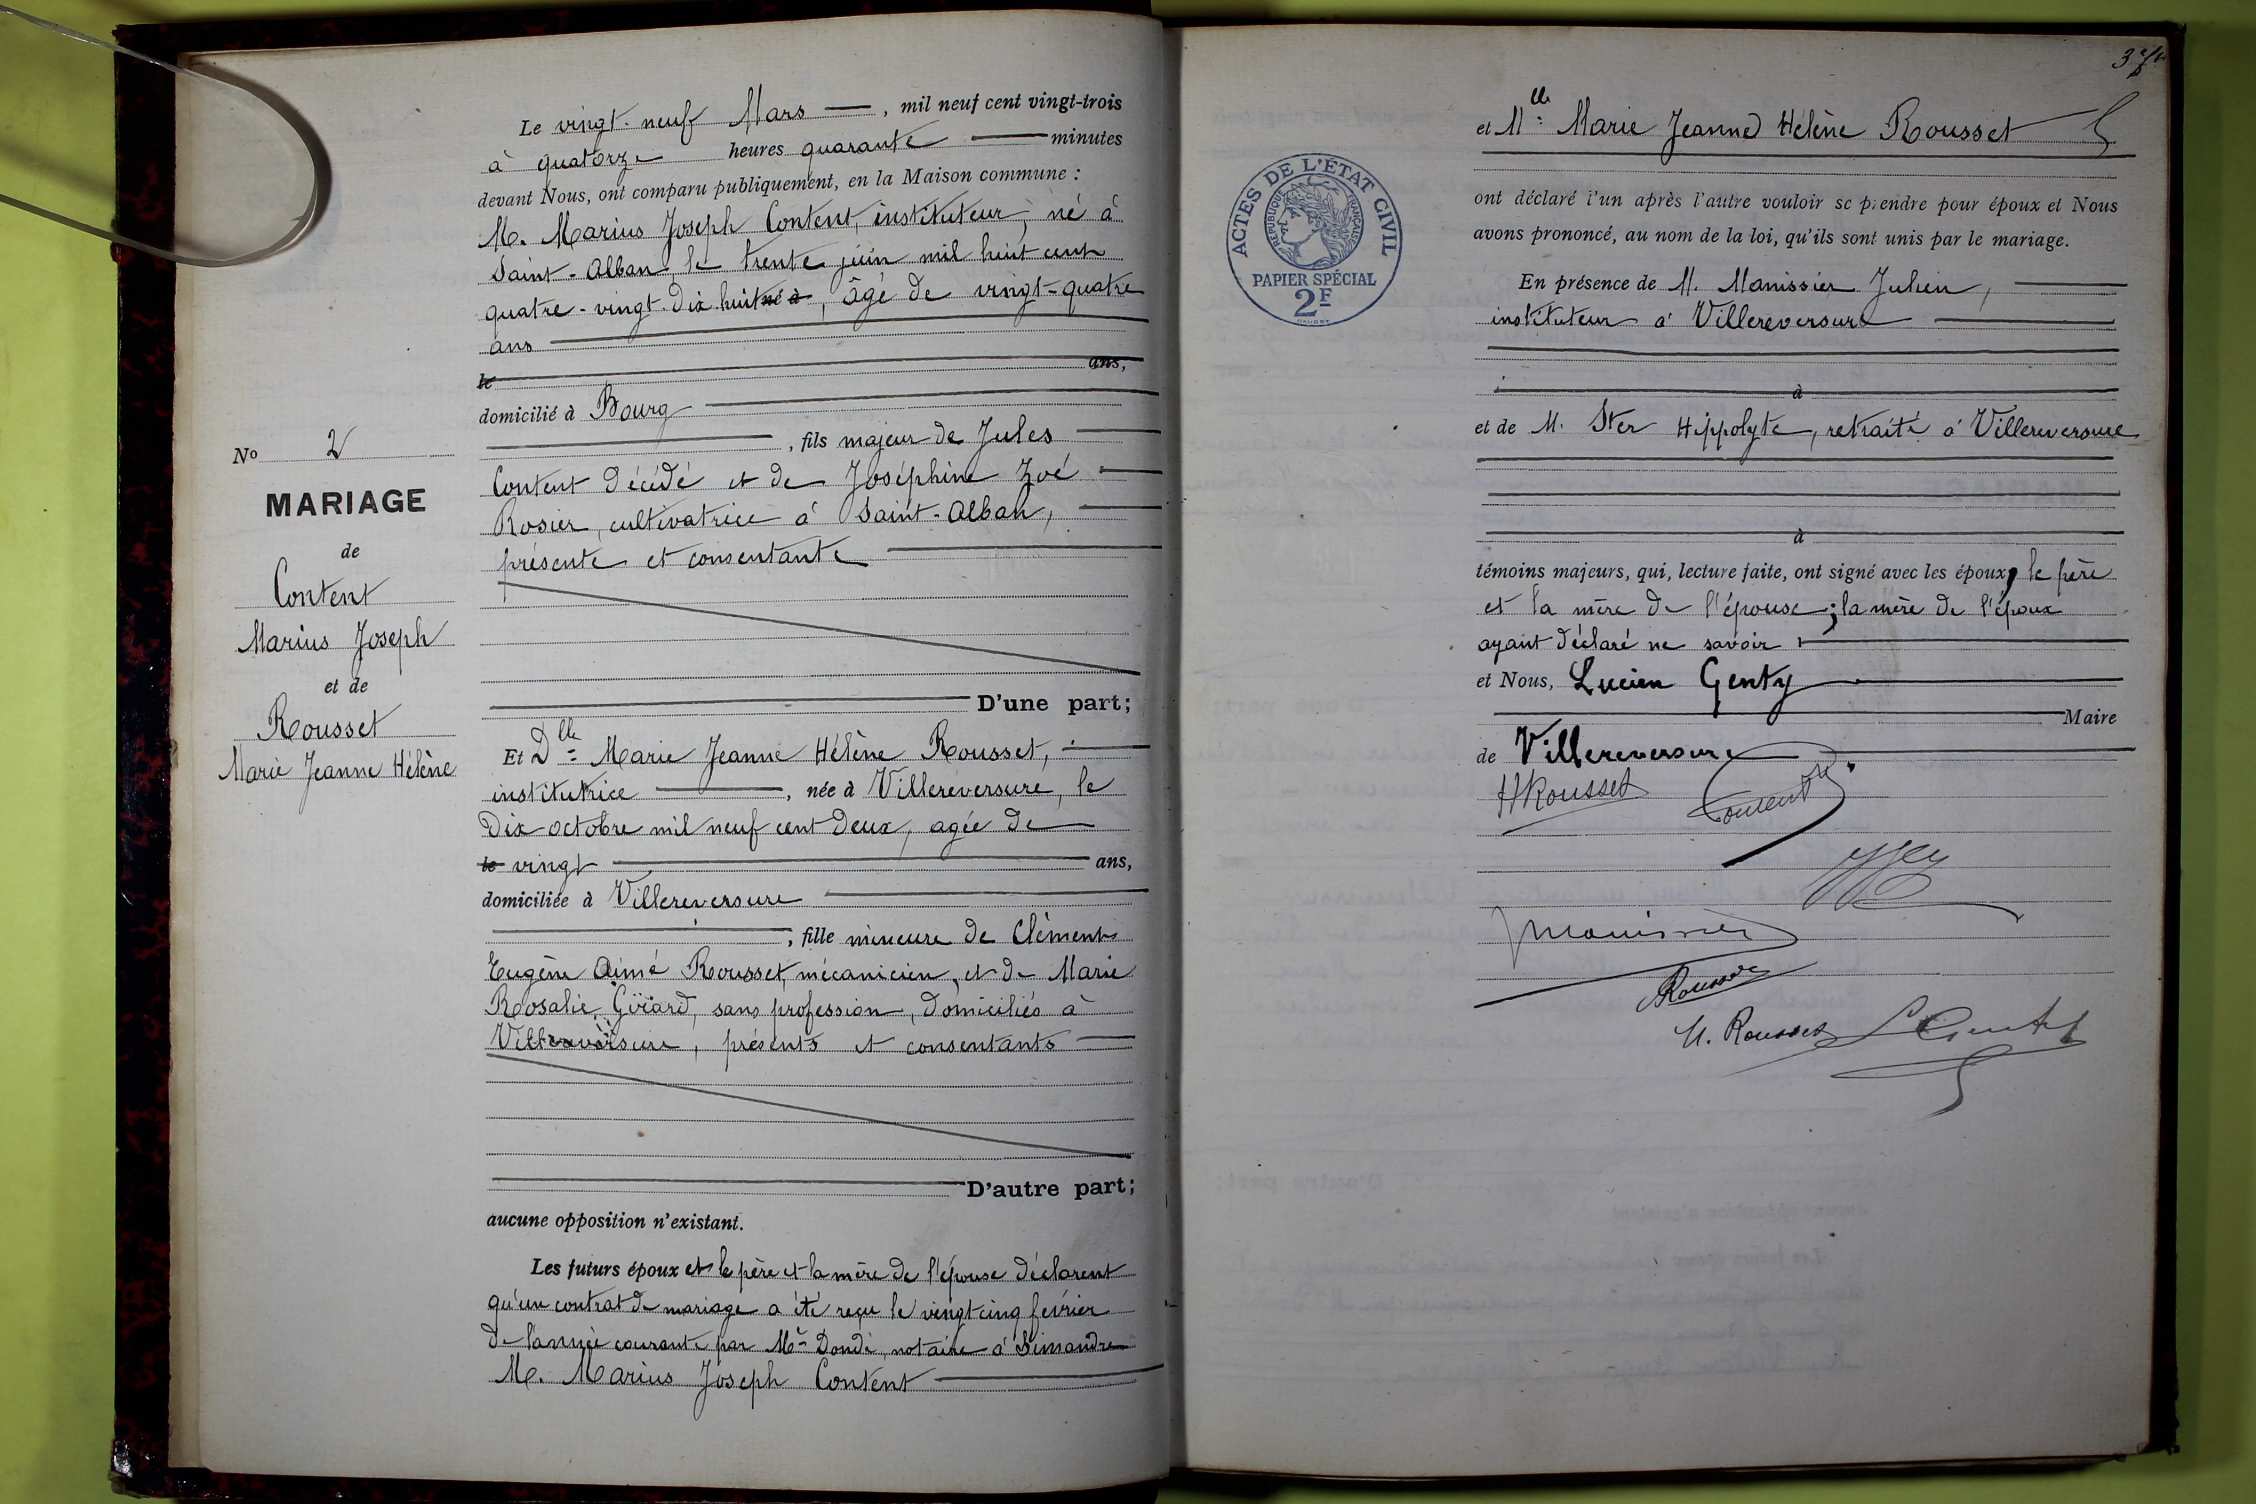 Le vingt-neuf Mars, mil neuf cent vingt-trois
à quatorze heures quarante minutes
devant Nous, ont comparu publiquement, en la Maison commune :
M. Marius Joseph Content, instituteur, né à
Saint-Alban, le trente juin mil huit cent
quatre-vingt-dix huit né à, âgé de vingt-quatre
ans
le ans,
domicilié à Bourg
, fils majeur de Jules
Content décédé et de Joséphine Zoé
Rosier, cultivatrice à Saint-Alban,
présente et consentante
D'une part;
No 2
MARIAGE
de
Content
Marius Joseph
et de
Rousset
Marie Jeanne Hélène
Et Dlle Marie Jeanne Hélène Rousset,
institutrice, née à Villereversure, le
Dix octobre mil neuf cent deux, agée de
le vingt ans,
domiciliée à Villereversure
, fille mineure de Clément
Eugène Aimé Rousset, mécanicien, et de Marie
Rosalie Girard, sans profession, domiciliés à
Villereversure, présents et consentants
D'autre part;
aucune opposition n'existant.
Les futurs époux et le père et la mère de l'épouse déclarent
qu'un contrat de mariage a été reçu le vingt cinq février
de l'année courante par Me Dondé, notaire à Simandre
M. Marius Joseph Content
et Mlle Marie Jeanne Hélène Rousset
ACTES DE L'ÉTAT CIVIL
REPUBLIQUE FRANÇAISE
PAPIER SPÉCIAL
2F
ont déclaré l'un après l'autre vouloir se prendre pour époux et Nous
avons prononcé, au nom de la loi, qu'ils sont unis par le mariage.
En présence de M. Manissier Julien,
instituteur à Villereversure
à
et de M. Ster Hippolyte, retraité à Villereversure
à
témoins majeurs, qui, lecture faite, ont signé avec les époux, le père
et la mère de l'épouse ; la mère de l'époux
ayant déclaré ne savoir
et Nous, Lucien Genty
Maire
de Villereversure
H Rousset Content
Manissier
Rousset
M. Rousset L Genty